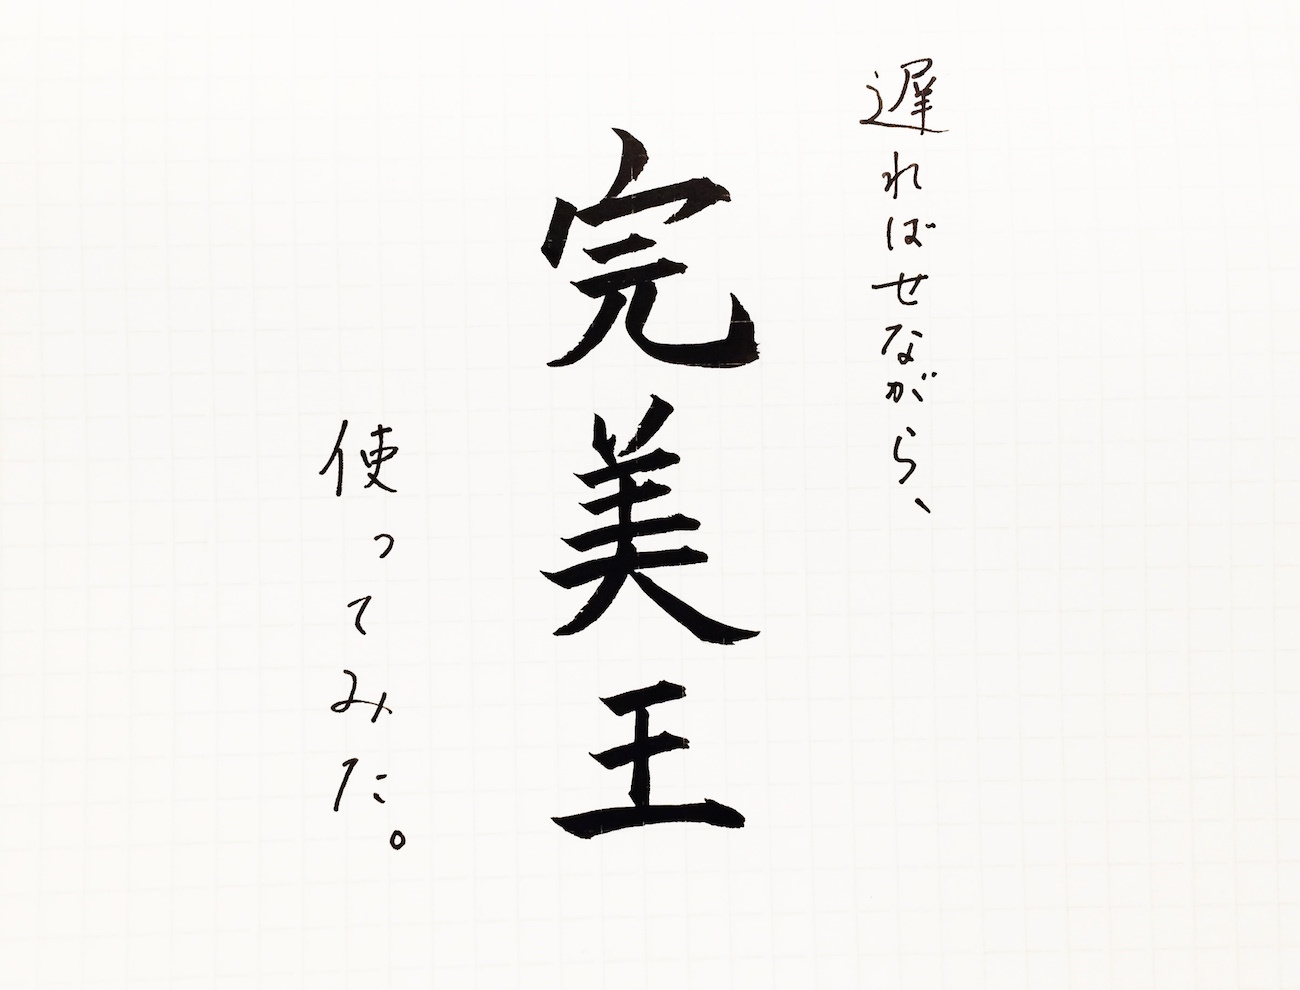 遅ればせながら、
完美王
使ってみた。